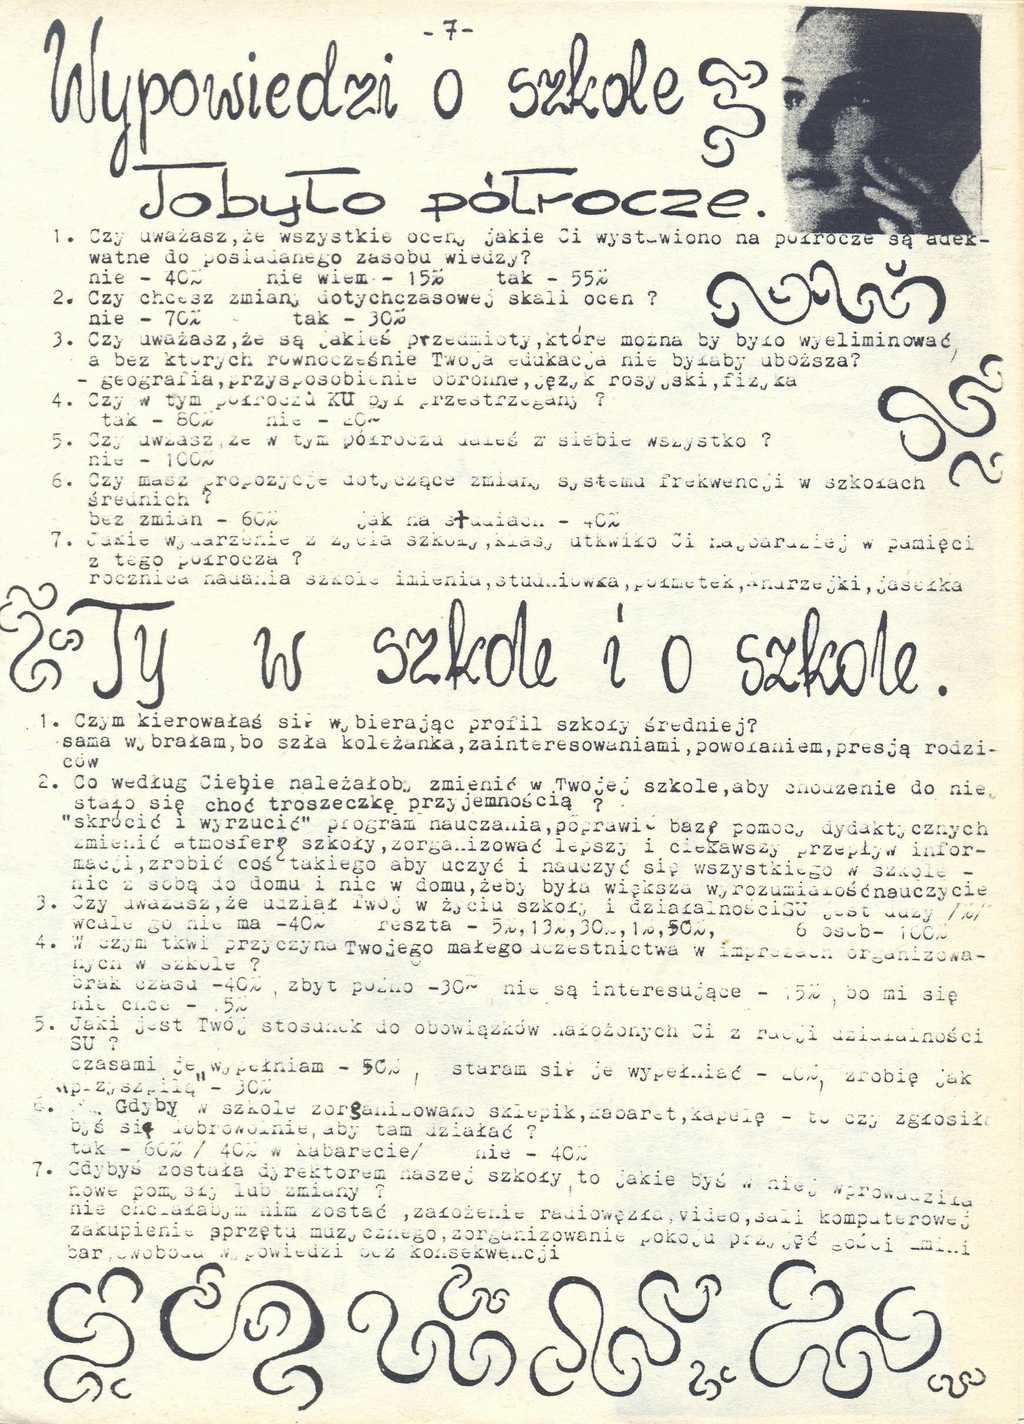 - 7 -
Wypowiedzi o szkole
To było półrocze.
1. Czy uważasz,że wszystkie oceny jakie Ci wystawiono na półrocze są adek-
watne do posiadanego zasobu wiedzy?
nie - 40% nie wiem - 15% tak - 55%
2. Czy chcesz zmiany dotychczasowej skali ocen ?
nie - 70% tak - 30%
3. Czy uważasz,że są jakieś przedmioty,które można by było wyeliminować,
a bez których równocześnie Twoja edukacja nie byłaby uboższa?
- geografia,przysposobienie obronne,język rosyjski,fizyka
4. Czy w tym półroczu KU był przestrzegany ?
tak - 80% nie - 20%
5. Czy uwżasz,że w tym półroczu dałeś z siebie wszystko ?
nie - 100%
6. Czy masz propozycje dotyczące zmiany systemu frekwencji w szkołach
średnich ?
bez zmian - 60% jak na studiach - 40%
7. Jakie wydarzenie z życia szkoły,klasy utkwiło Ci najbardziej w pamięci
z tego półrocza ?
rocznica nadania szkole imienia,studniówka,półmetek,Andrzejki,jasełka
Ty w szkole i o szkole.
1. Czym kierowałaś się wybierając profil szkoły średniej?
sama wybrałam,bo szła koleżanka,zainteresowaniami,powołaniem,presją rodzi-
ców
2. Co według Ciebie należałoby zmienić w Twojej szkole,aby chodzenie do niej
stało się choć troszeczkę przyjemnością ?
"skrócić i wyrzucić" program nauczania,poprawić bazę pomocy dydaktycznych
zmienić atmosferę szkoły,zorganizować lepszy i ciekawszy przepływ infor-
macji,zrobić coś takiego aby uczyć i nauczyć się wszystkiego w szkole -
nic z sobą do domu i nic w domu,żeby była większa wyrozumiałość nauczycie
3. Czy uważasz,że udział Twój w życiu szkoły i działalności SU jest duży /%/
wcale go nie ma -40% reszta - 5%,13%,30%,1%,50%, 6 osób- 100%
4. W czym tkwi przyczyna Twojego małego uczestnictwa w imprezach organizowa-
nych w szkole ?
brak czasu -40% , zbyt późno -30% nie są interesujące - 15% , bo mi się
nie chce - 15%
5. Jaki jest Twój stosunek do obowiązków nałożonych Ci z racji działalności
SU ?
czasami je wypełniam - 50% , staram się je wypełniać - 20%, zrobię jak
"przyszpilą" - 30%
6. Gdyby w szkole zorganizowano sklepik,kabaret,kapelę - to czy zgłosiła
byś się dobrowolnie,aby tam działać ?
tak - 60% / 40% w kabarecie/ nie - 40%
7. Gdybyś została dyrektorem naszej szkoły,to jakie byś w niej wprowadziła
nowe pomysły lub zmiany ?
nie chciałabym nim zostać ,założenie radiowęzła,video,sali komputerowej
zakupienie sprzętu muzycznego,zorganizowanie pokoju przyjęć gości mini
bar,swoboda wypowiedzi bez konsekwencji